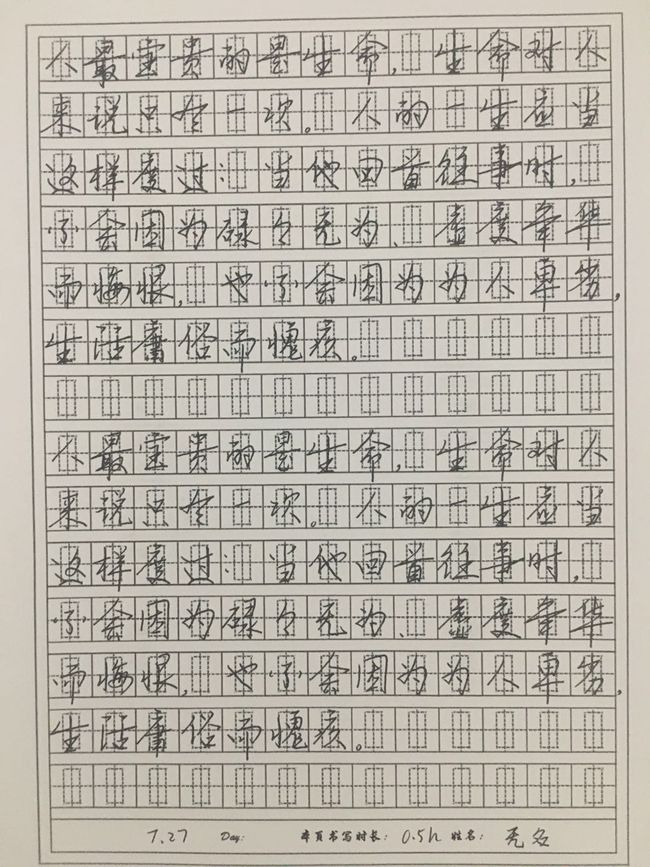 人最宝贵的是生命，生命对人
来说只有一次。人的一生应当
这样度过：当他回首往事时，
不会因为碌々无为、虚度年华
而悔恨，也不会因为为人卑劣，
生活庸俗而愧疚。
人最宝贵的是生命，生命对人
来说只有一次。人的一生应当
这样度过：当他回首往事时，
不会因为碌々无为、虚度年华
而悔恨，也不会因为为人卑劣，
生活庸俗而愧疚。
7.27 Day: 本页书写时长: 0.5h 姓名: 无名